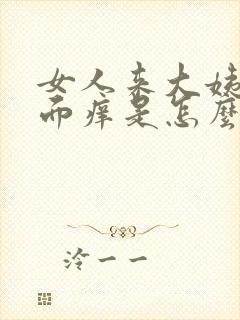 女人来大姨
而痒是怎麼
泠一一